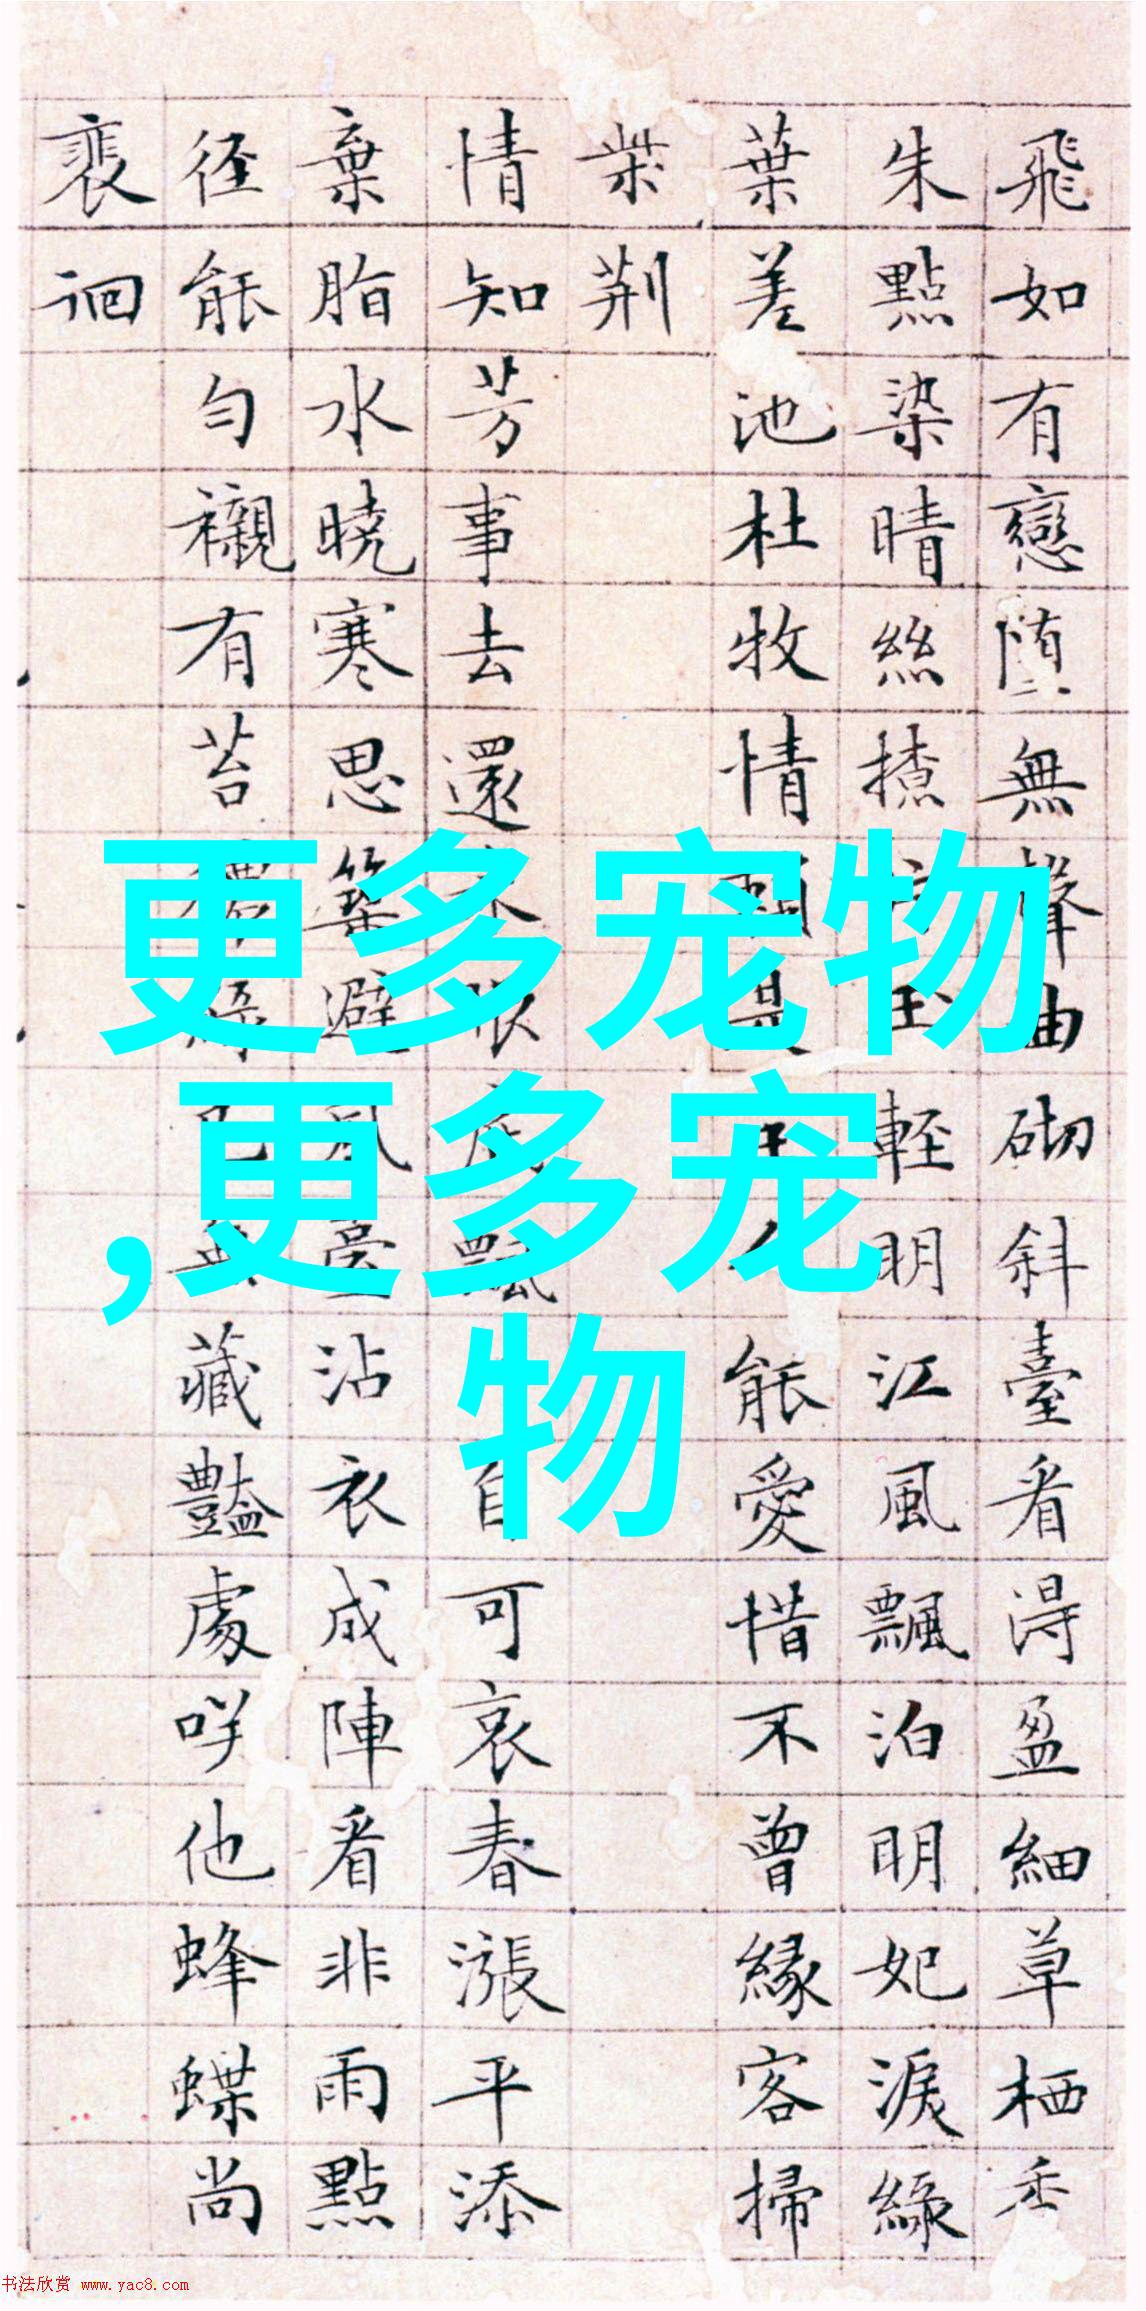 飛如有戀墮無聲曲砌斜臺看得盈細草栖香
朱點染晴絲揸輕明江風飄泊明妃淚綠
葉差池杜牧情能愛惜不曾緣客掃
柴荆
情知芳事去還飄自可哀春漲平添
棄脂水曉寒思築避風臺沾衣成陣看非雨點
径能勻襯有苔藏豔處咲他蜂蝶尚
裵徊
更多宠物
,更多宠
物
书法欣赏 www.yac8.com